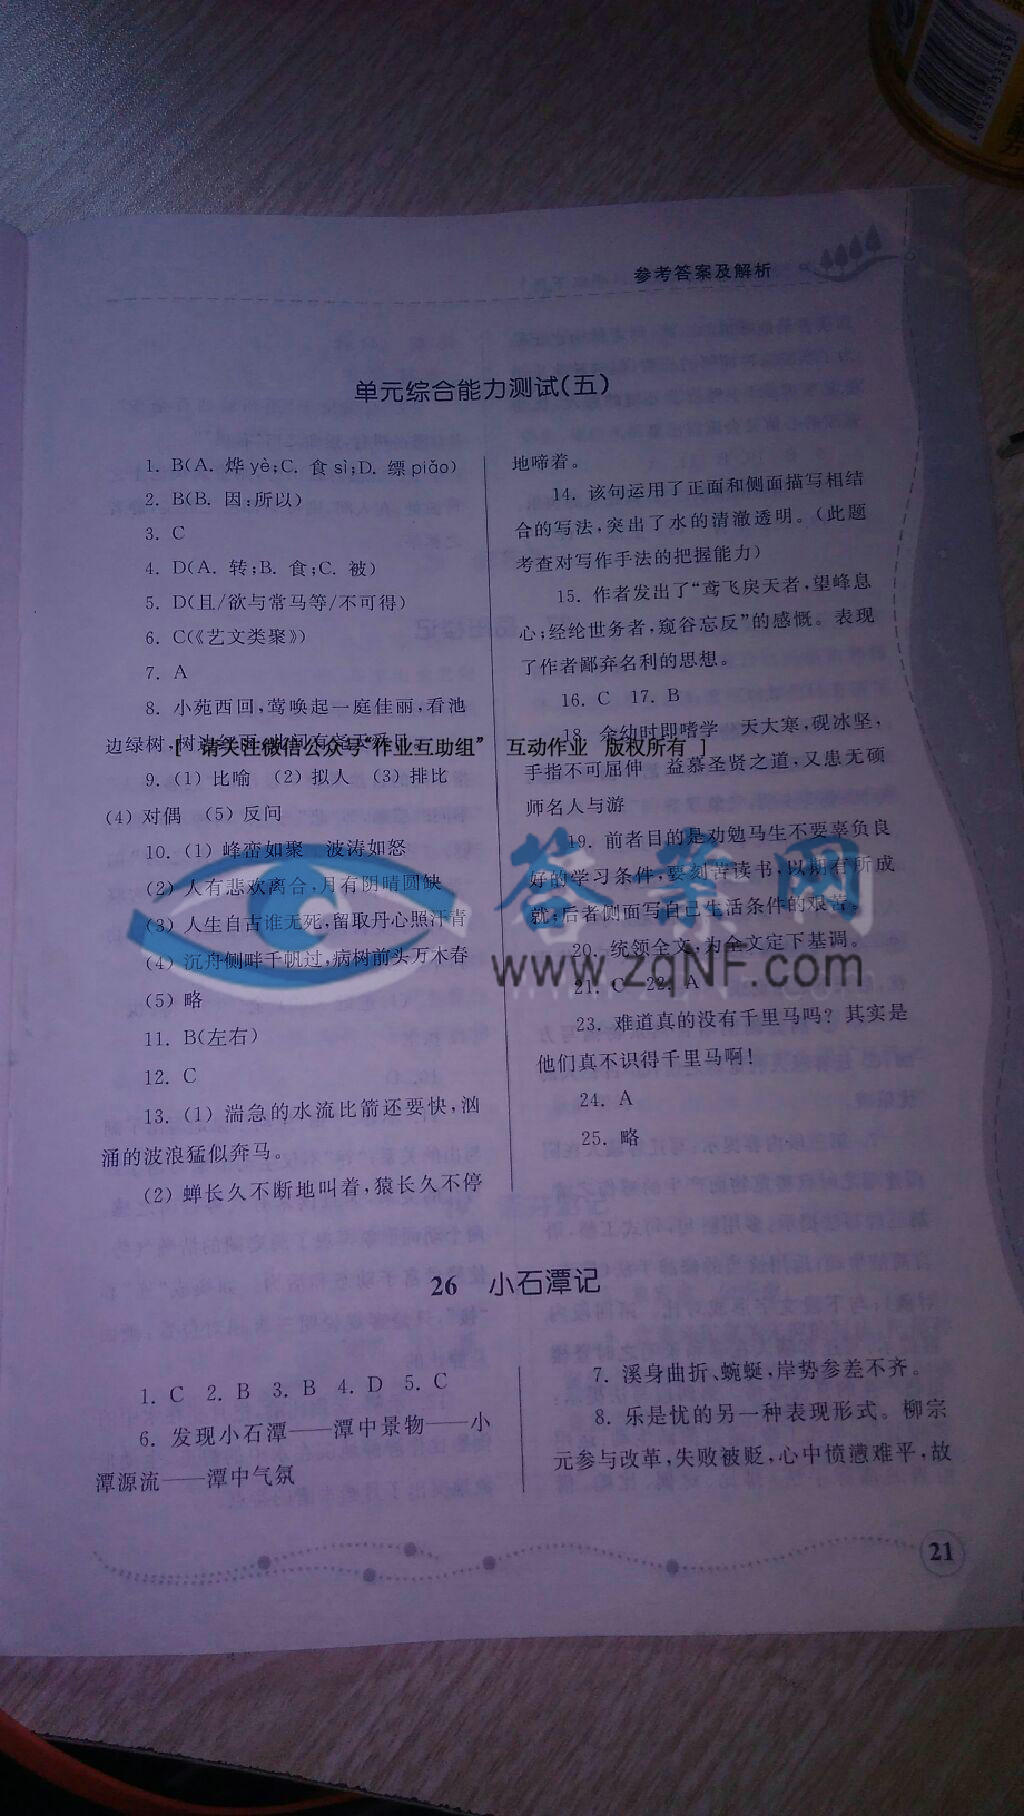 参考答案及解析
单元综合能力测试(五)
1. B(A. 烨yè;C. 食sì;D. 缥piǎo)
2. B(B. 因;所以)
3. C
4. D(A. 转;B. 食;C. 被)
5. D(且/欲与常马等/不可得)
6. C(《艺文类聚》)
7. A
8. 小苑西回,莺唤起一庭佳丽,看池
边绿树,树边红雨,此间有舜天尧日。
[ 请关注微信公众号“作业互助组” 互动作业 版权所有 ]
9. (1) 比喻 (2) 拟人 (3) 排比
(4) 对偶 (5) 反问
10. (1) 峰峦如聚 波涛如怒
(2) 人有悲欢离合,月有阴晴圆缺
(3) 人生自古谁无死,留取丹心照汗青
(4) 沉舟侧畔千帆过,病树前头万木春
(5) 略
11. B(左右)
12. C
13. (1) 湍急的水流比箭还要快,汹
涌的波浪猛似奔马。
(2) 蝉长久不断地叫着,猿长久不停
地啼着。
14. 该句运用了正面和侧面描写相结
合的写法,突出了水的清澈透明。(此题
考查对写作手法的把握能力)
15. 作者发出了“鸢飞戾天者,望峰息
心;经纶世务者,窥谷忘反”的感慨。表现
了作者鄙弃名利的思想。
16. C 17. B
18. 余幼时即嗜学 天大寒,砚冰坚,
手指不可屈伸 益慕圣贤之道,又患无硕
师名人与游
19. 前者目的是劝勉马生不要辜负良
好的学习条件,要刻苦读书,以期有所成
就;后者侧面写自己生活条件的艰苦。
20. 统领全文,为全文定下基调。
21. C 22. A
23. 难道真的没有千里马吗? 其实是
他们真不识得千里马啊!
24. A
25. 略
答案网
www.zqNF.com
26 小石潭记
1. C 2. B 3. B 4. D 5. C
6. 发现小石潭——潭中景物——小
潭源流——潭中气氛
7. 溪身曲折、蜿蜒,岸势参差不齐。
8. 乐是忧的另一种表现形式。柳宗
元参与改革,失败被贬,心中愤懑难平,故
21